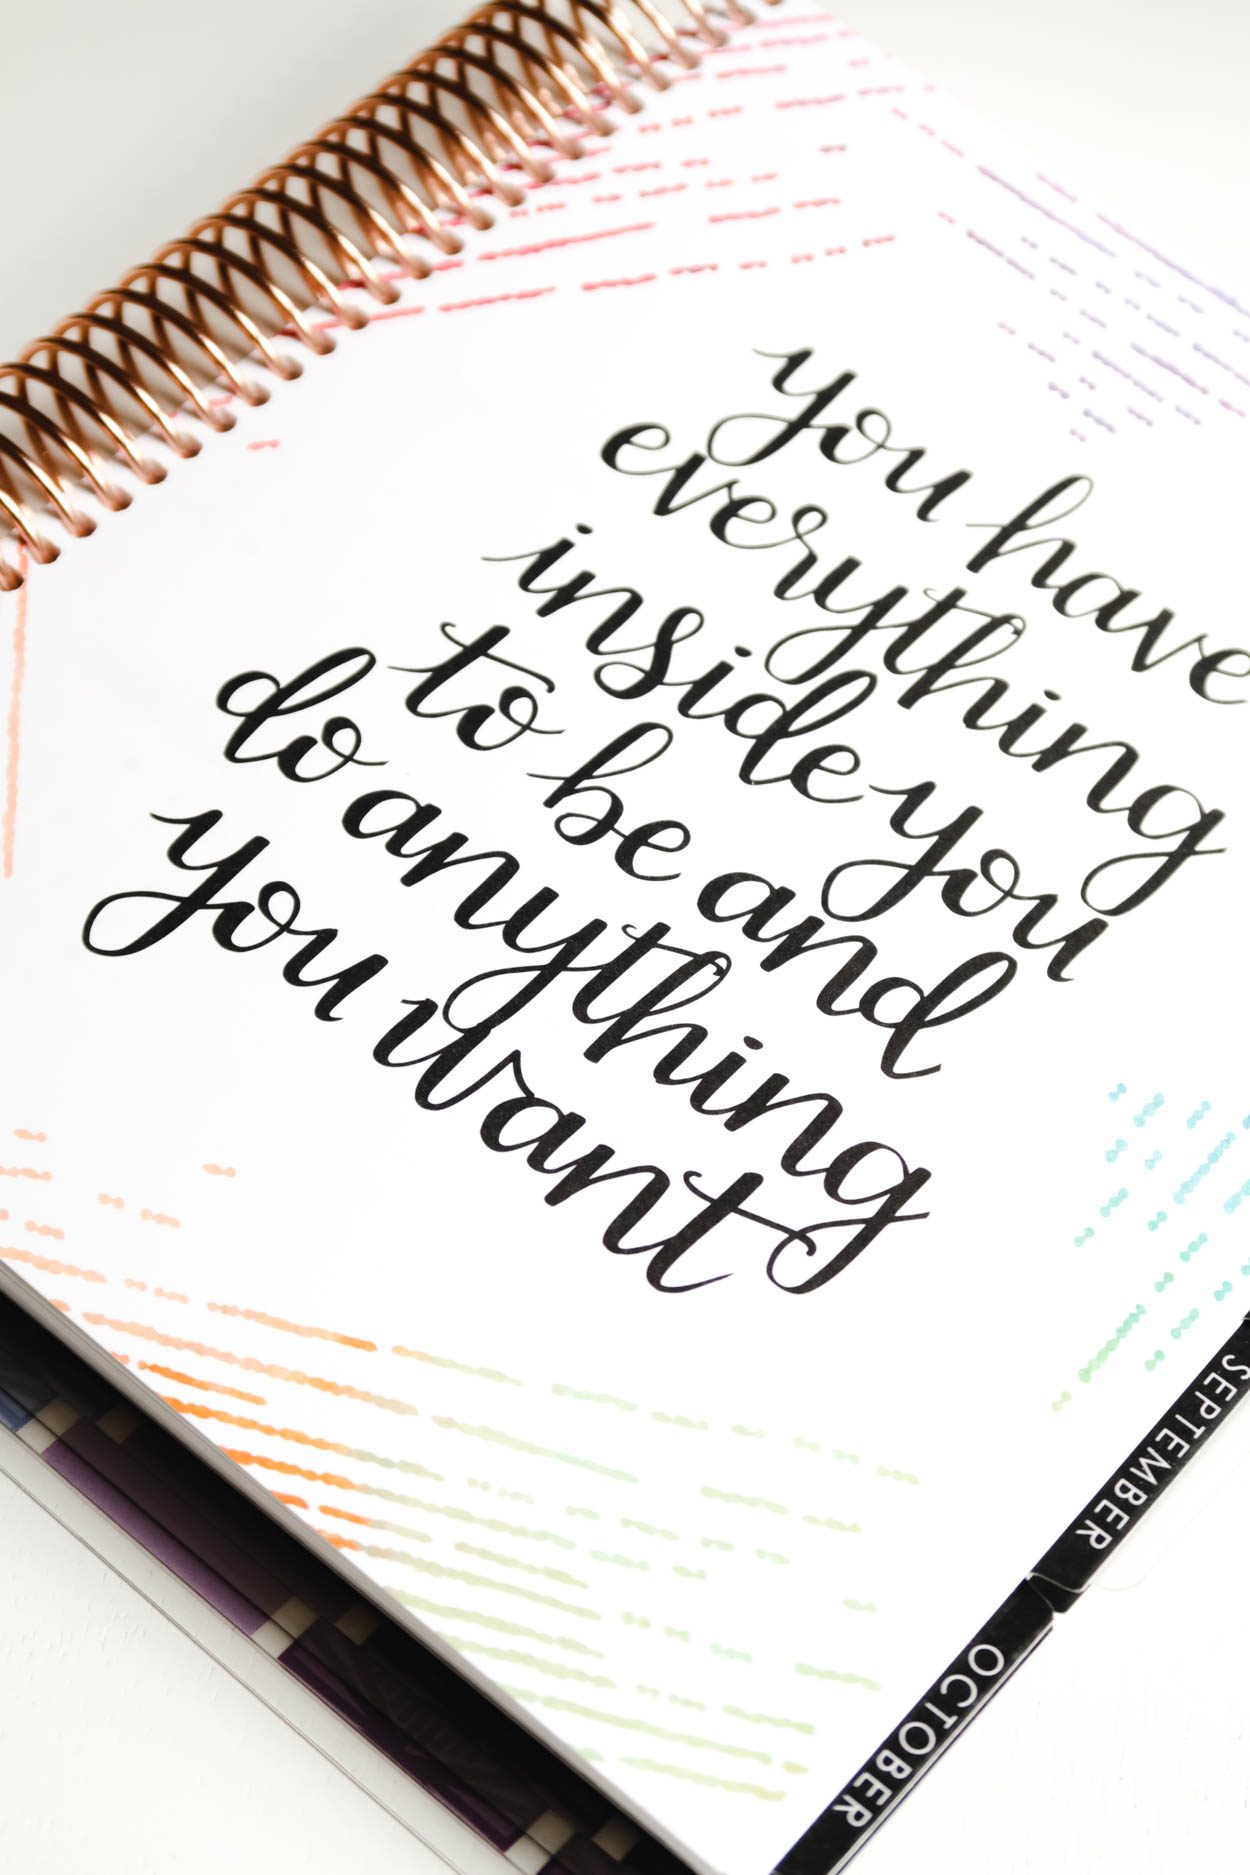 you have
everything
inside you
to be and
do anything
you want
SEPTEMBER
OCTOBER